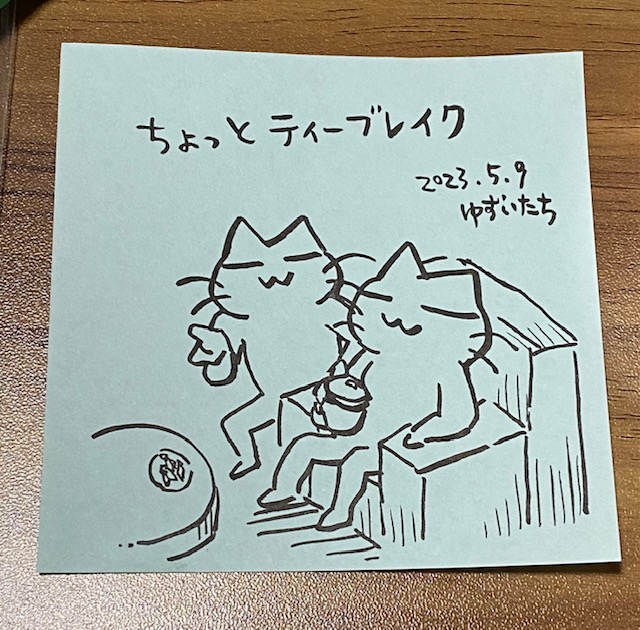 ちょっとティーブレイク
2023.5.9
ゆずいたち